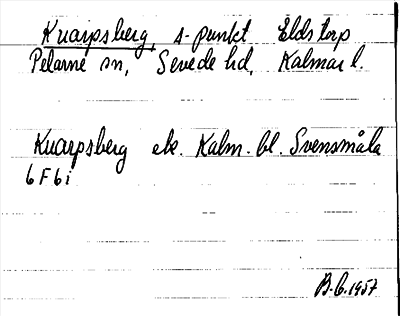 Knarpsberg, s-punkt Eldstorp
Pelarne sn, Sevede hd, Kalmar l.
Knarpsberg ek. Kalm. bl. Svensmåla
6 F 6 i
B.C. 1957